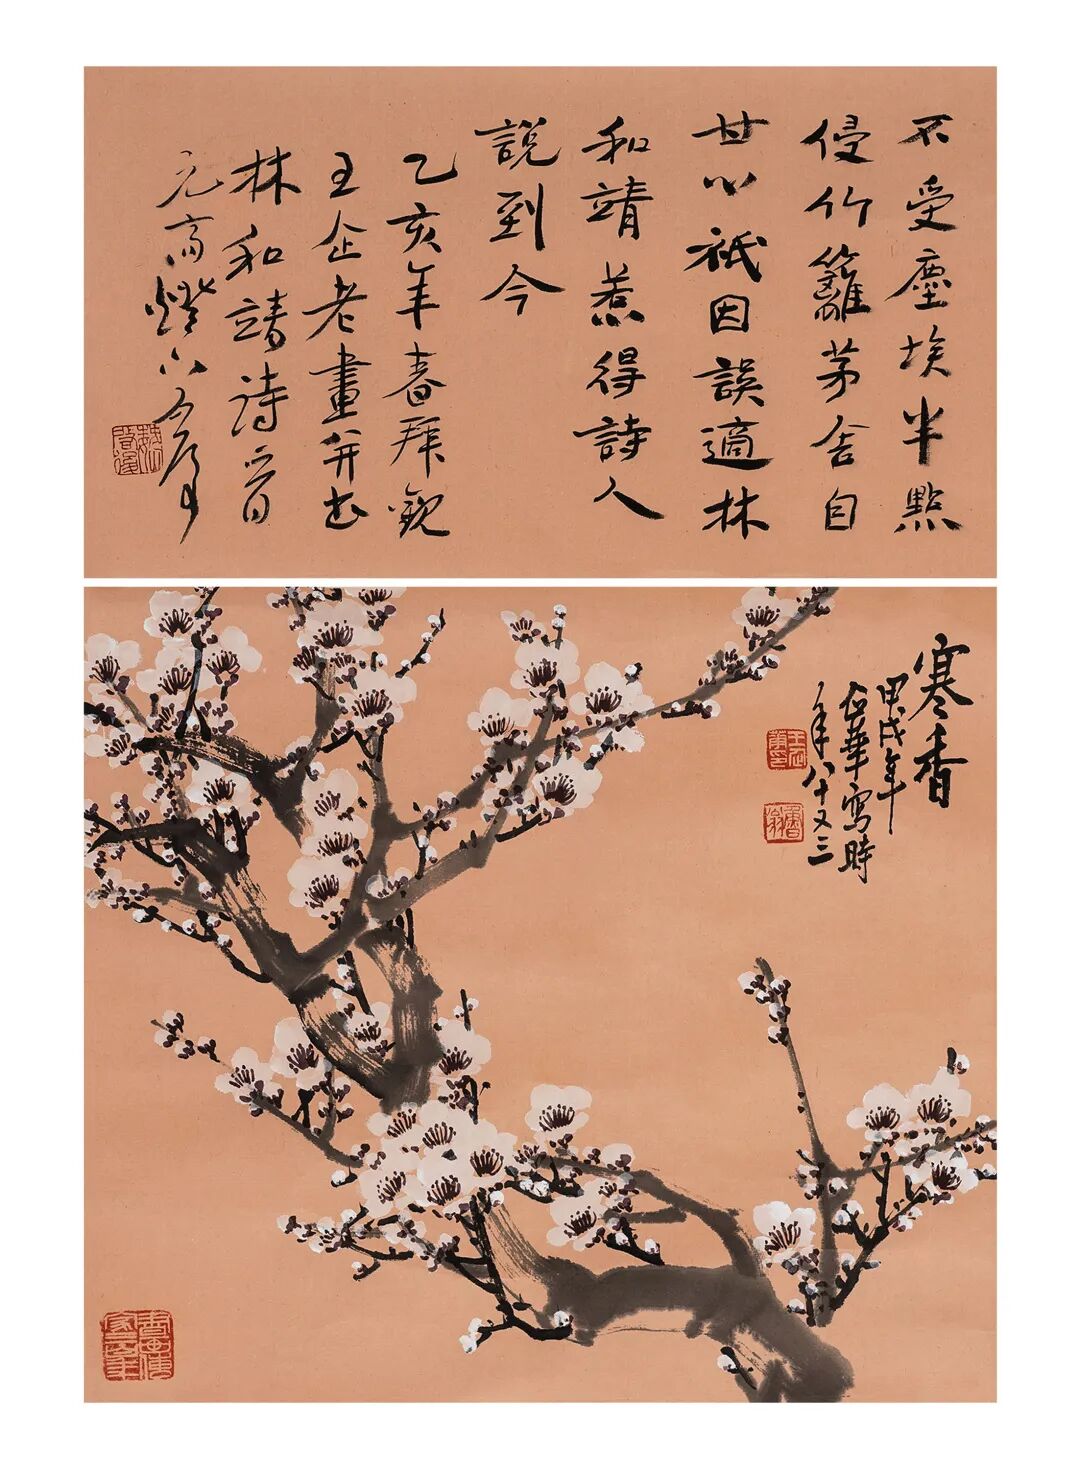 不受塵埃半點
侵竹籬茅舍自
甘心祇因誤適林
和靖惹得詩人
說到今
乙亥年春拜觀
王企老畫并書
林和靖詩
元宵燈下
寒香
甲戌年
企華寫時
年八十又三